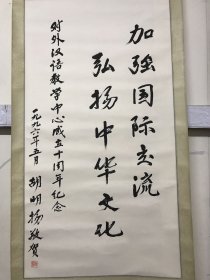 加强国际交流
弘扬中华文化
对外汉语教学中心成立十周年纪念
一九九六年五月 胡明扬敬贺